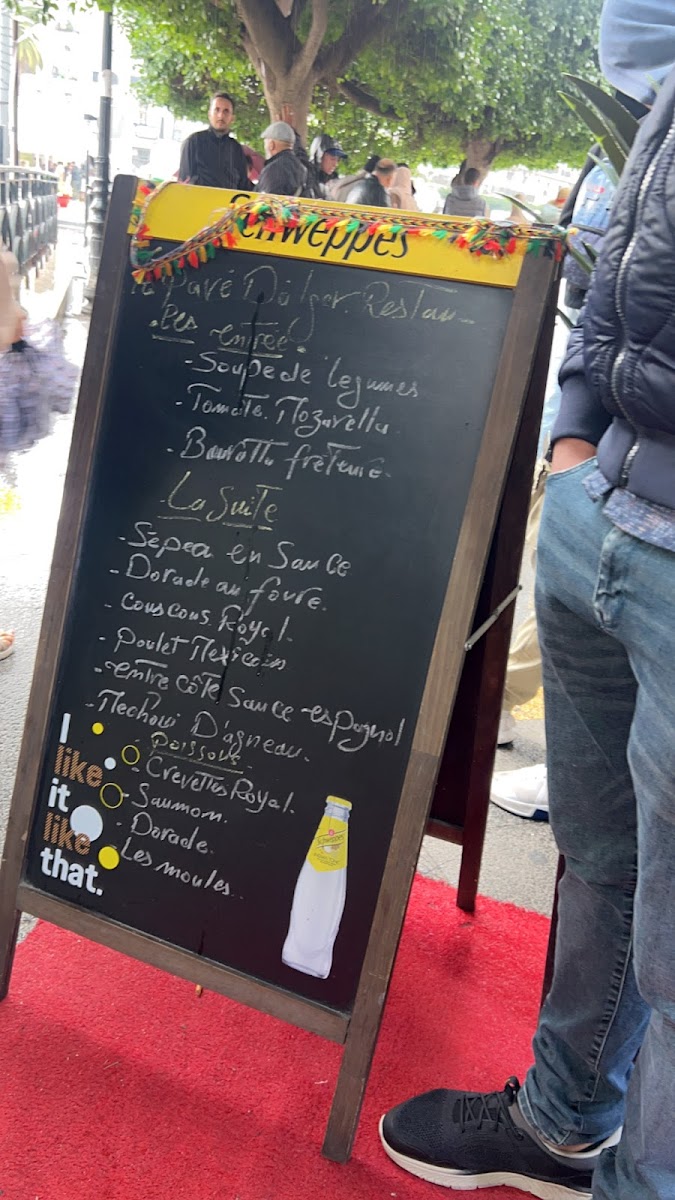 Schweppes
Pavé D'alger. Restau
Les entrée.
- Soupe de légumes
- Tomate. Mozarella.
- Bourotta
La Suite
- Sépea en Sauce
- Dorade au foure.
- Couscous. Royal.
- Poulet Mexicain
- entre Côte Sauce espagnol
- Mechoui D'agneau.
- Poissons.
- Crevettes Royal.
- Saumon.
- Dorade.
- Les moules..
I
like
it
like
that.